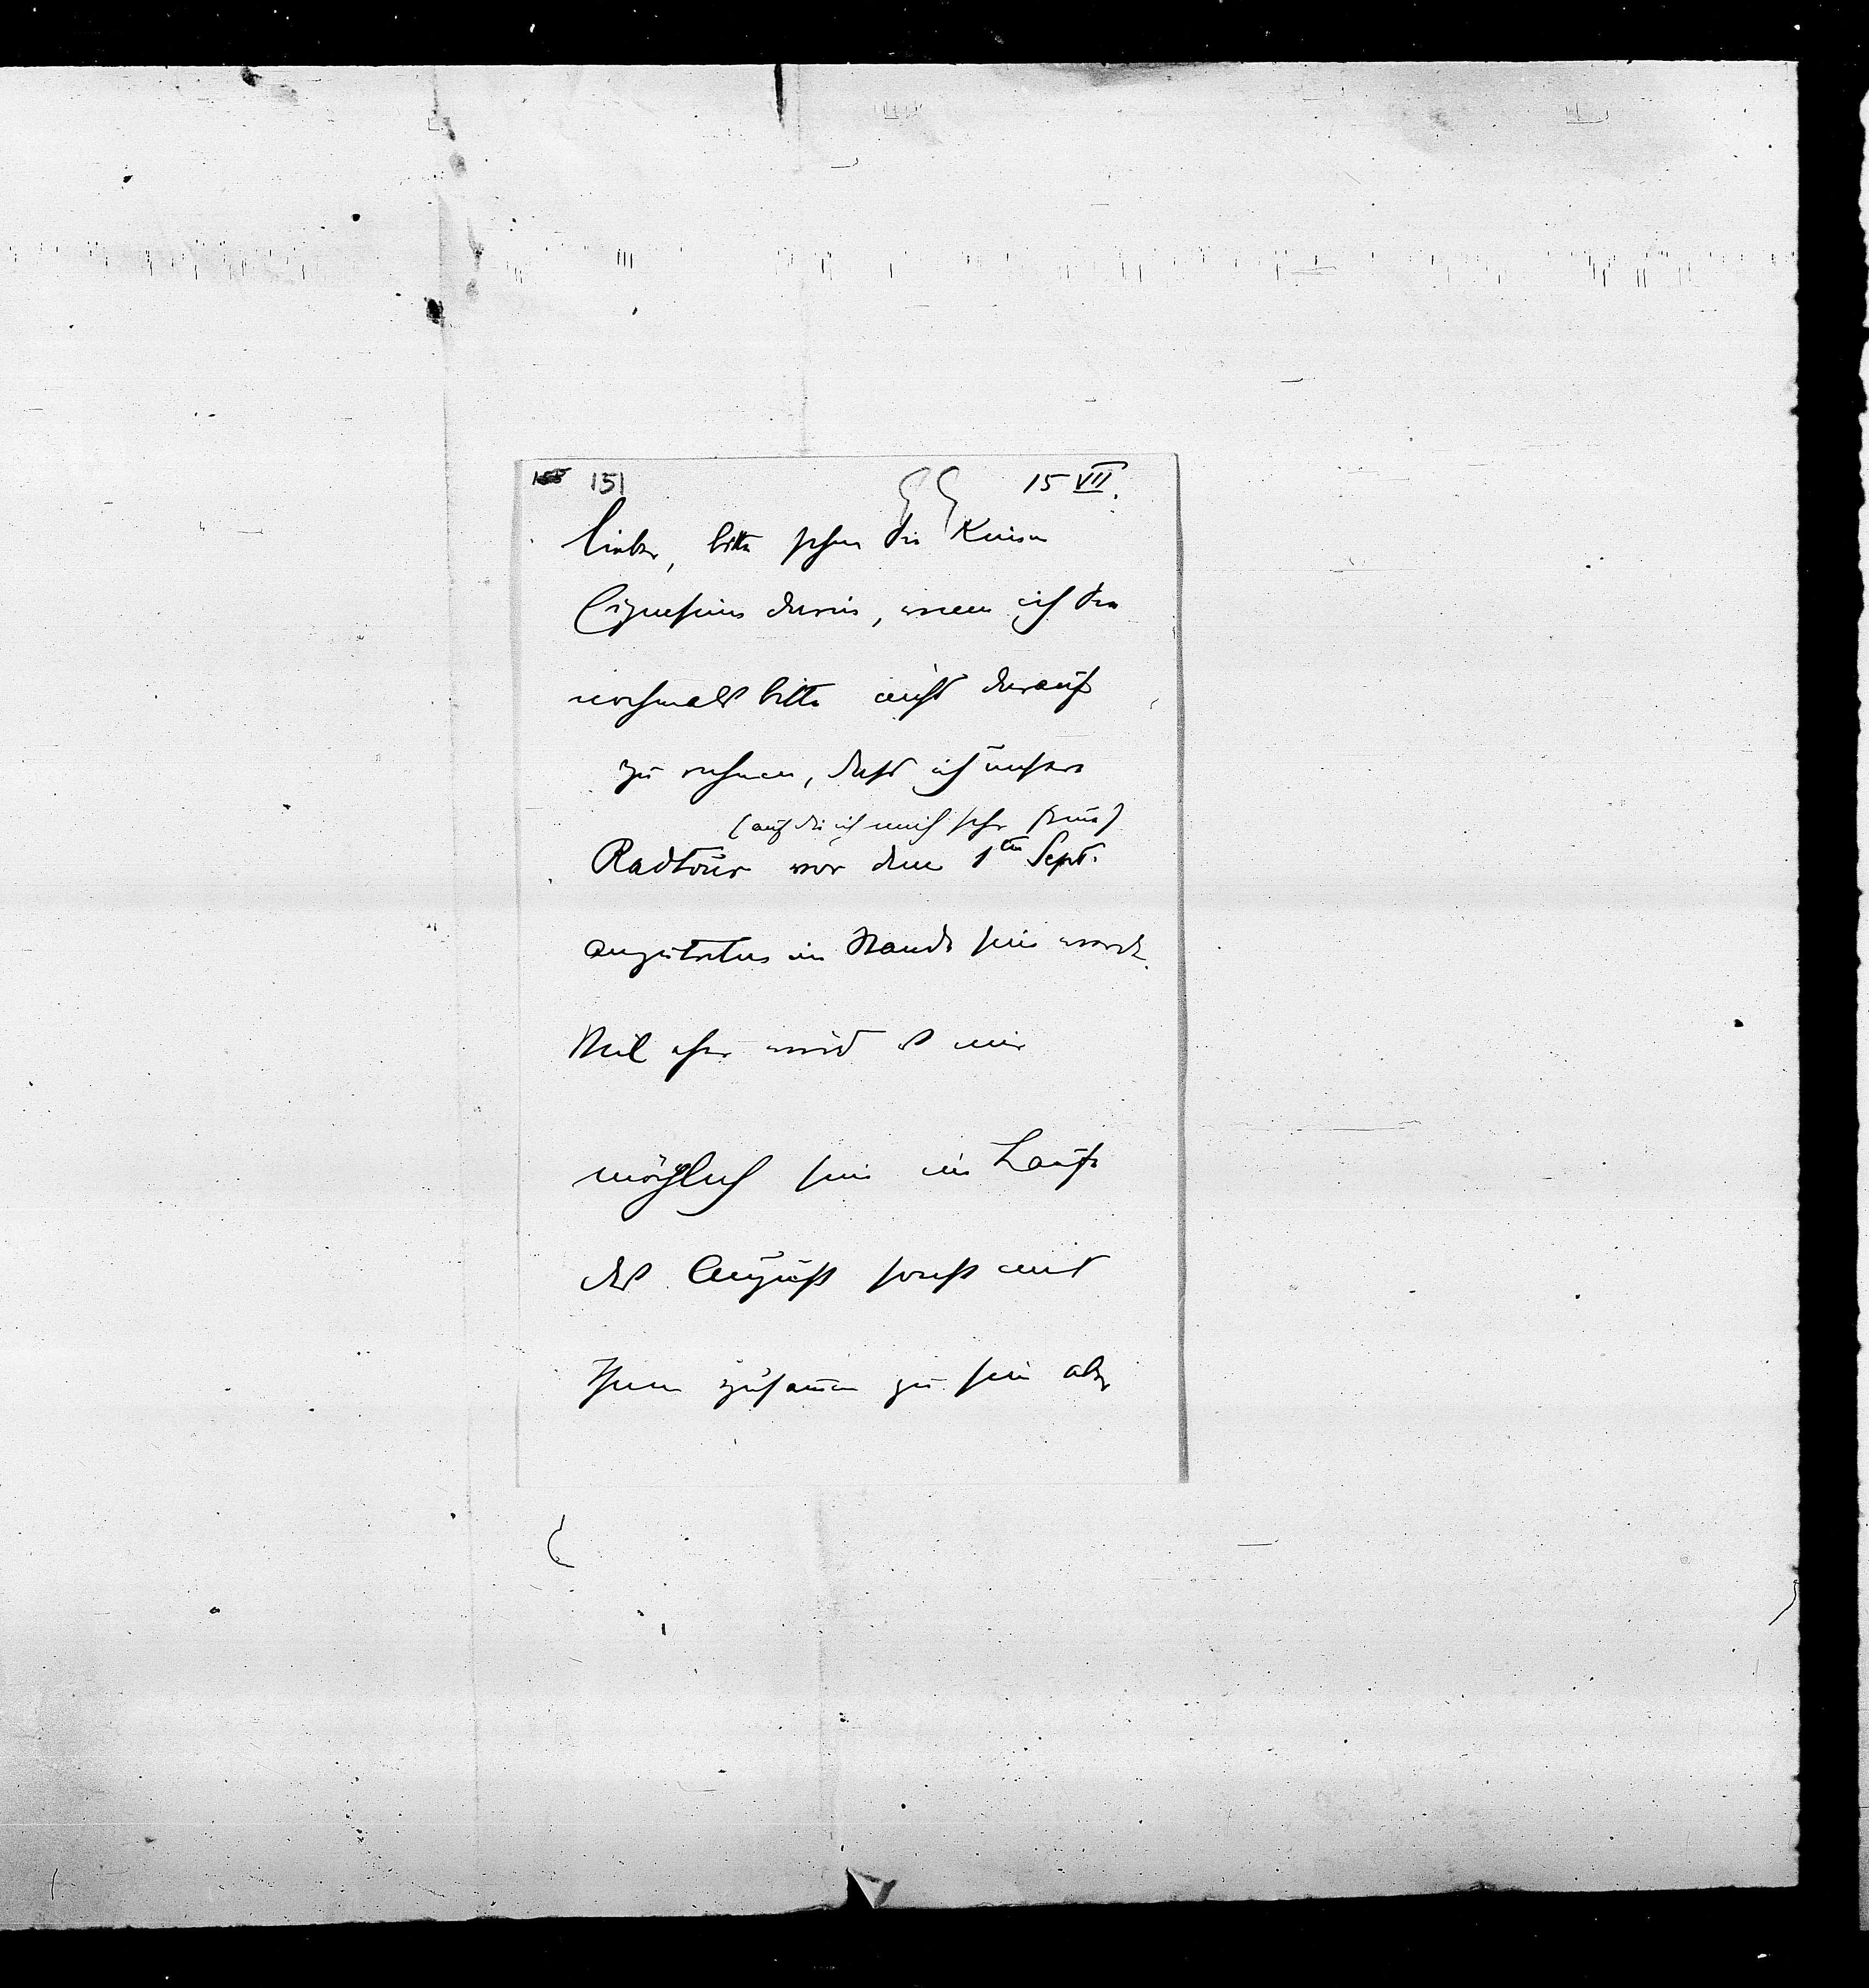 151 15 VII.
lieber, bitte sehen Sie keinen
Eigensinn darin, wenn ich Sie
nochmals bitte nicht darauf
zu rechnen, dass ich unsere
(auf die ich mich sehr freue)
Radtour vor dem 1ten Sept.
anzutreten im Stande sein werde.
Viel eher wird es mir
möglich sein im Laufe
des August sonst mit
Ihnen zusammen zu sein aber